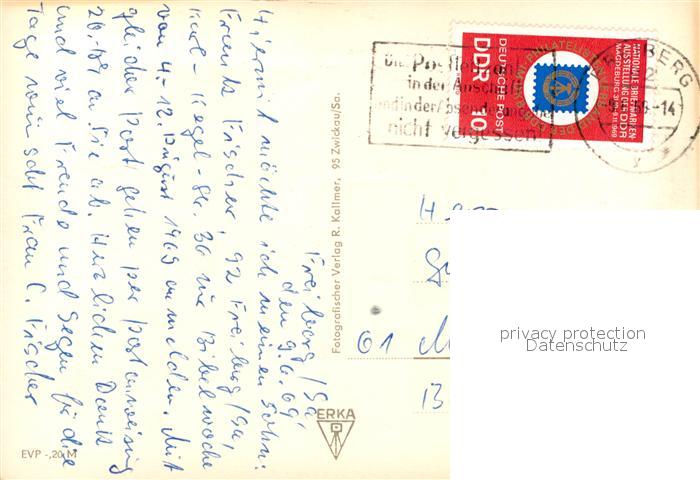 Freiberg/Sa,
den 9.6.69,
Hiermit möchte ich meinen Sohn:
Frank Fischer, 92 Freiberg/Sa,
Karl-Kegel-Str. 36 zur Bibelwoche
vom 4.-12. August 1969 anmelden. Mit
gleicher Post gehen per Postanweisung
20,- an Sie ab. Herzlichen Dank
und viel Freude und Segen für die
Tage wünscht Frau C. Fischer
EVP -,20 M
Fotografischer Verlag R. Kallmer, 95 Zwickau/Sa.
ERKA
Die Postleitzahl
in der Anschrift
und in der Absenderangabe
nicht vergessen
DDR 10
DEUTSCHE POST
NATIONALE BRIEFMARKEN-
AUSSTELLUNG 20 JAHRE DDR
MAGDEBURG 31.10.-9.11.1969
FREIBERG
-14
01
B
privacy protection
Datenschutz